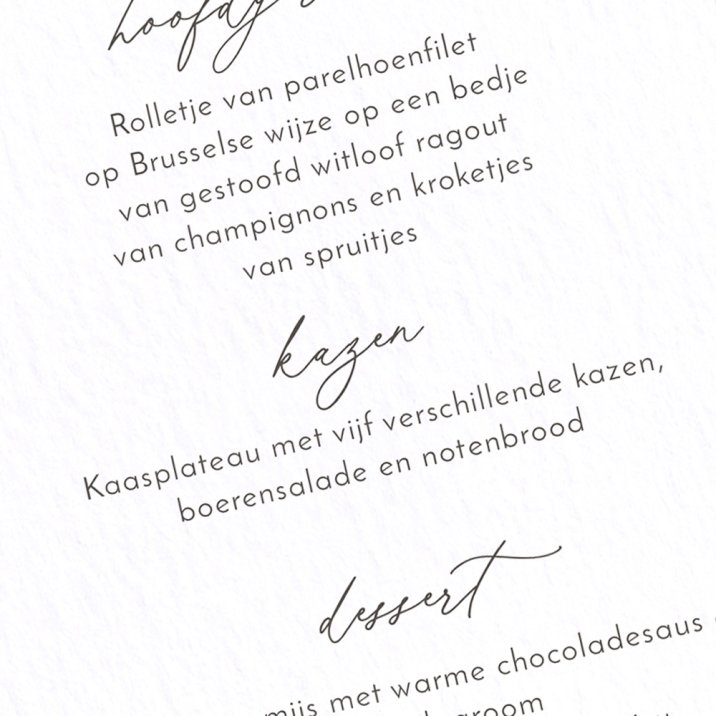 Rolletje van parelhoenfilet
op Brusselse wijze op een bedje
van gestoofd witloof ragout
van champignons en kroketjes
van spruitjes
kazen
Kaasplateau met vijf verschillende kazen,
boerensalade en notenbrood
dessert
met warme chocoladesaus